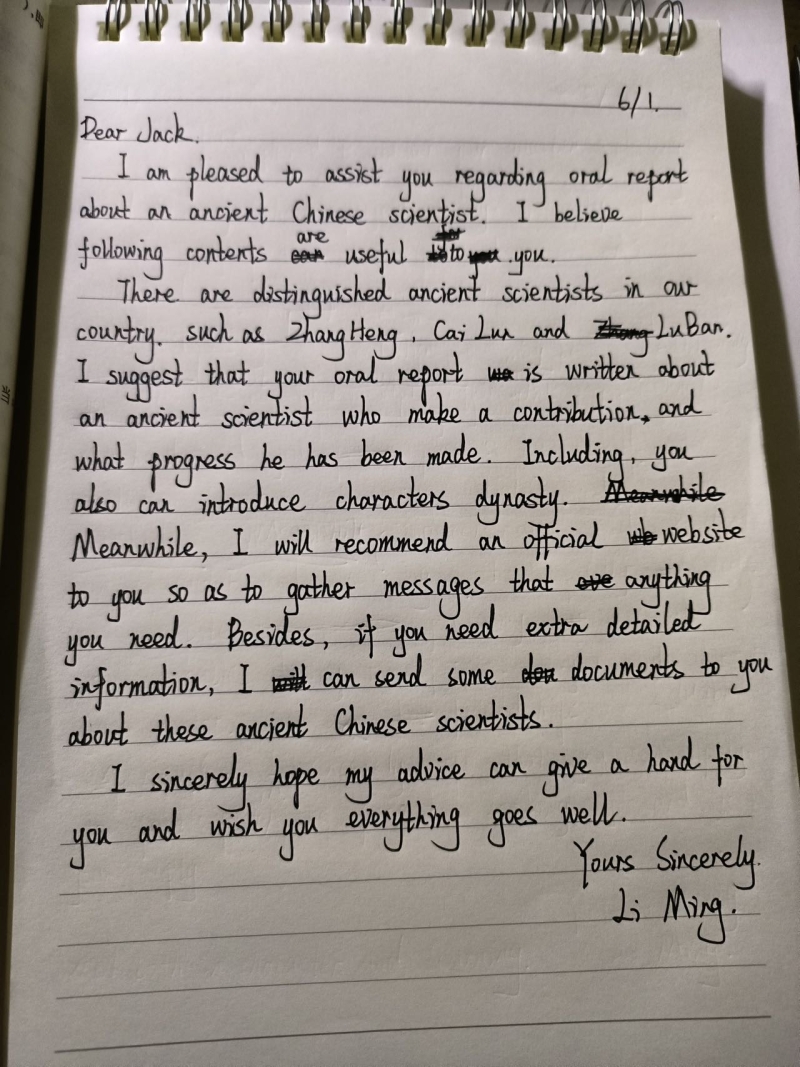 6/1.
Dear Jack.
I am pleased to assist you regarding oral report
about an ancient Chinese scientist. I believe
following contents are useful to you.
There are distinguished ancient scientists in our
country. such as Zhang Heng, Cai Lun and LuBan.
I suggest that your oral report is written about
an ancient scientist who make a contribution, and
what progress he has been made. Including, you
also can introduce characters dynasty.
Meanwhile, I will recommend an official website
to you so as to gather messages that anything
you need. Besides, if you need extra detailed
information, I can send some documents to you
about these ancient Chinese scientists.
I sincerely hope my advice can give a hand for
you and wish you everything goes well.
Yours Sincerely.
Li Ming.